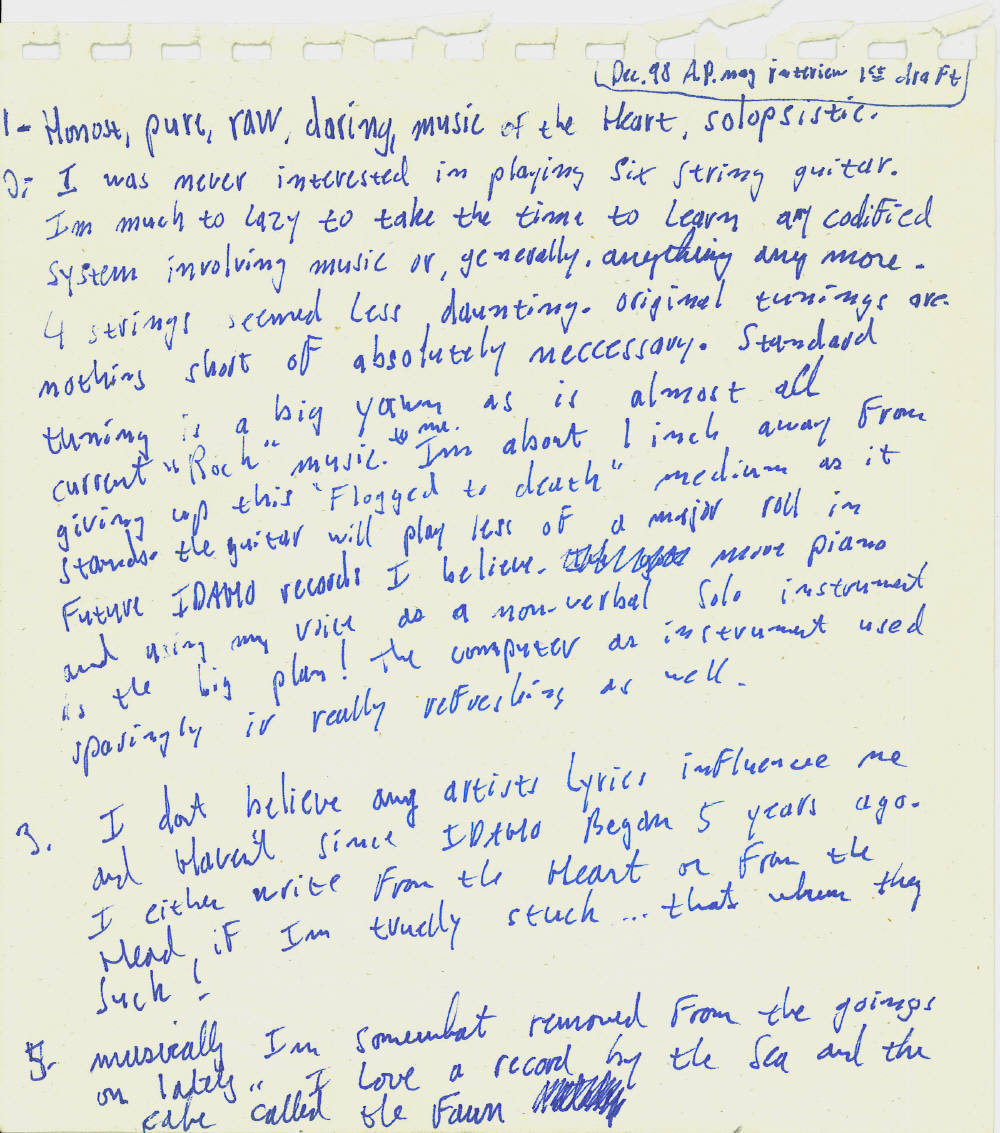 Dec. 98 A.P. mag interview 1st draft
1- Honost, pure, raw, daring, music of the Heart, solopsistic.
2; I was never interested in playing six string guitar.
Im much to lazy to take the time to Learn any codified
system involving music or, generally. anything any more.
4 strings seemed Less daunting. original tunings are
nothing short of absolutely neccessary. Standard
tuning is a big yawn as is almost all
current "Rock" music. to me. Im about 1 inch away From
giving up this "Flogged to death" medium as it
stands. the guitar will play less of a major roll in
Future IDAHO records I believe. more piano
and using my voice as a non-verbal Solo instrument
is the big plan! the computer as instrument used
sparingly is really refreshing as well.
3. I dont believe any artists Lyrics influence me
and Haven't since IDAHO Began 5 years ago.
I either write From the Heart or From the
Head, if Im truelly stuck ... thats when they
Suck!
5. musically Im somewhat removed From the goings
on lately" I Love a record by the Sea and the
cake called the Fawn